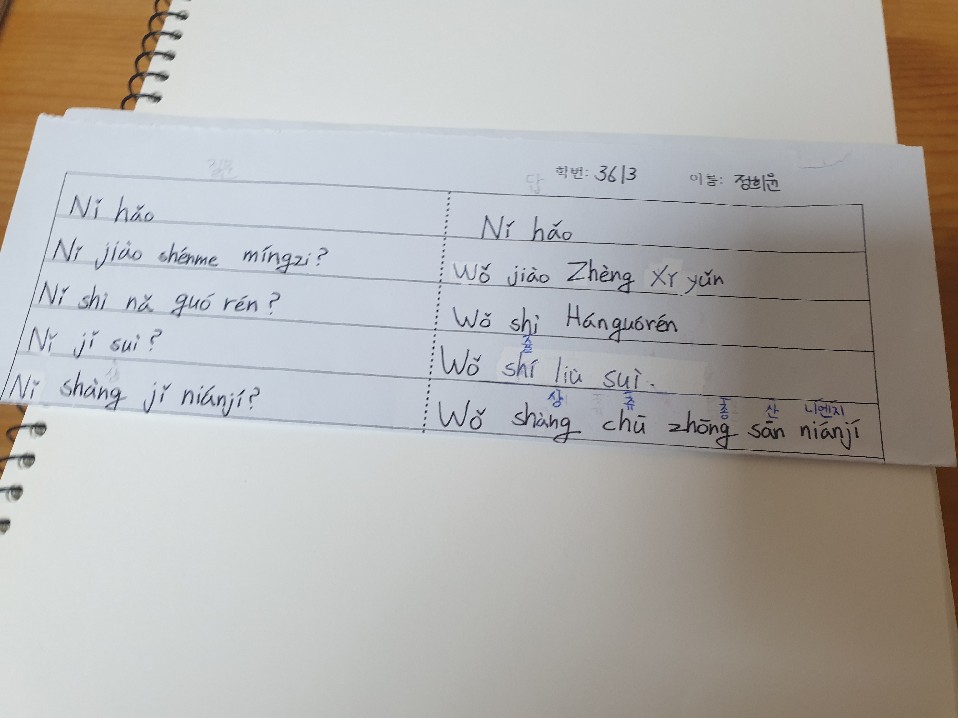 질문
답 학번: 3613 이름: 정희윤
Nǐ hǎo
Nǐ hǎo
Nǐ jiào shénme míngzi?
Wǒ jiào Zhèng Xī yǔn
Nǐ shì nǎ guó rén?
Wǒ shì Hánguórén
Nǐ jǐ suì?
Wǒ shí liù suì.
상
상 츄 종 산 니엔지
Nǐ shàng jǐ niánjí?
Wǒ shàng chū zhōng sān niánjí